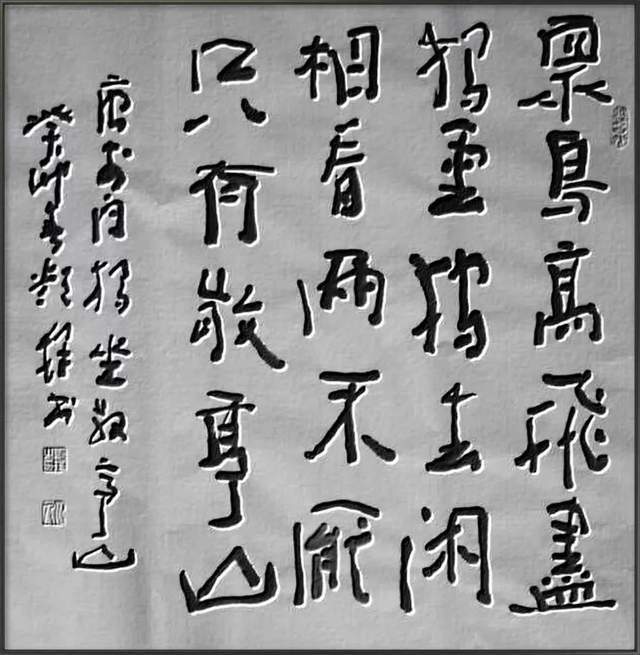 眾鳥高飛盡
獨雲獨去閑
相看兩不厭
只有敬亭山
唐李白獨坐敬亭山
癸卯春書